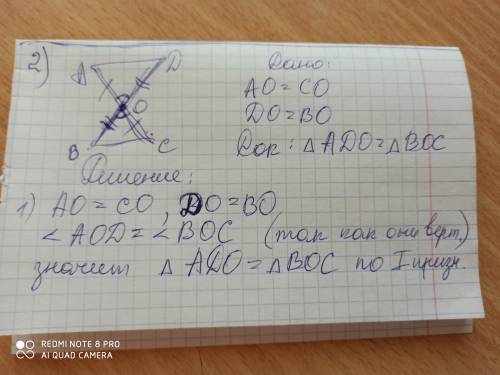 2)
A D
Дано:
O
AO = CO
DO = BO
B C
Док: △ ADO = △ BOC
Решение:
1) AO = CO, DO = BO
∠ AOD = ∠ BOC (так как они верт.)
значит △ ADO = △ BOC по I призн.
REDMI NOTE 8 PRO
AI QUAD CAMERA